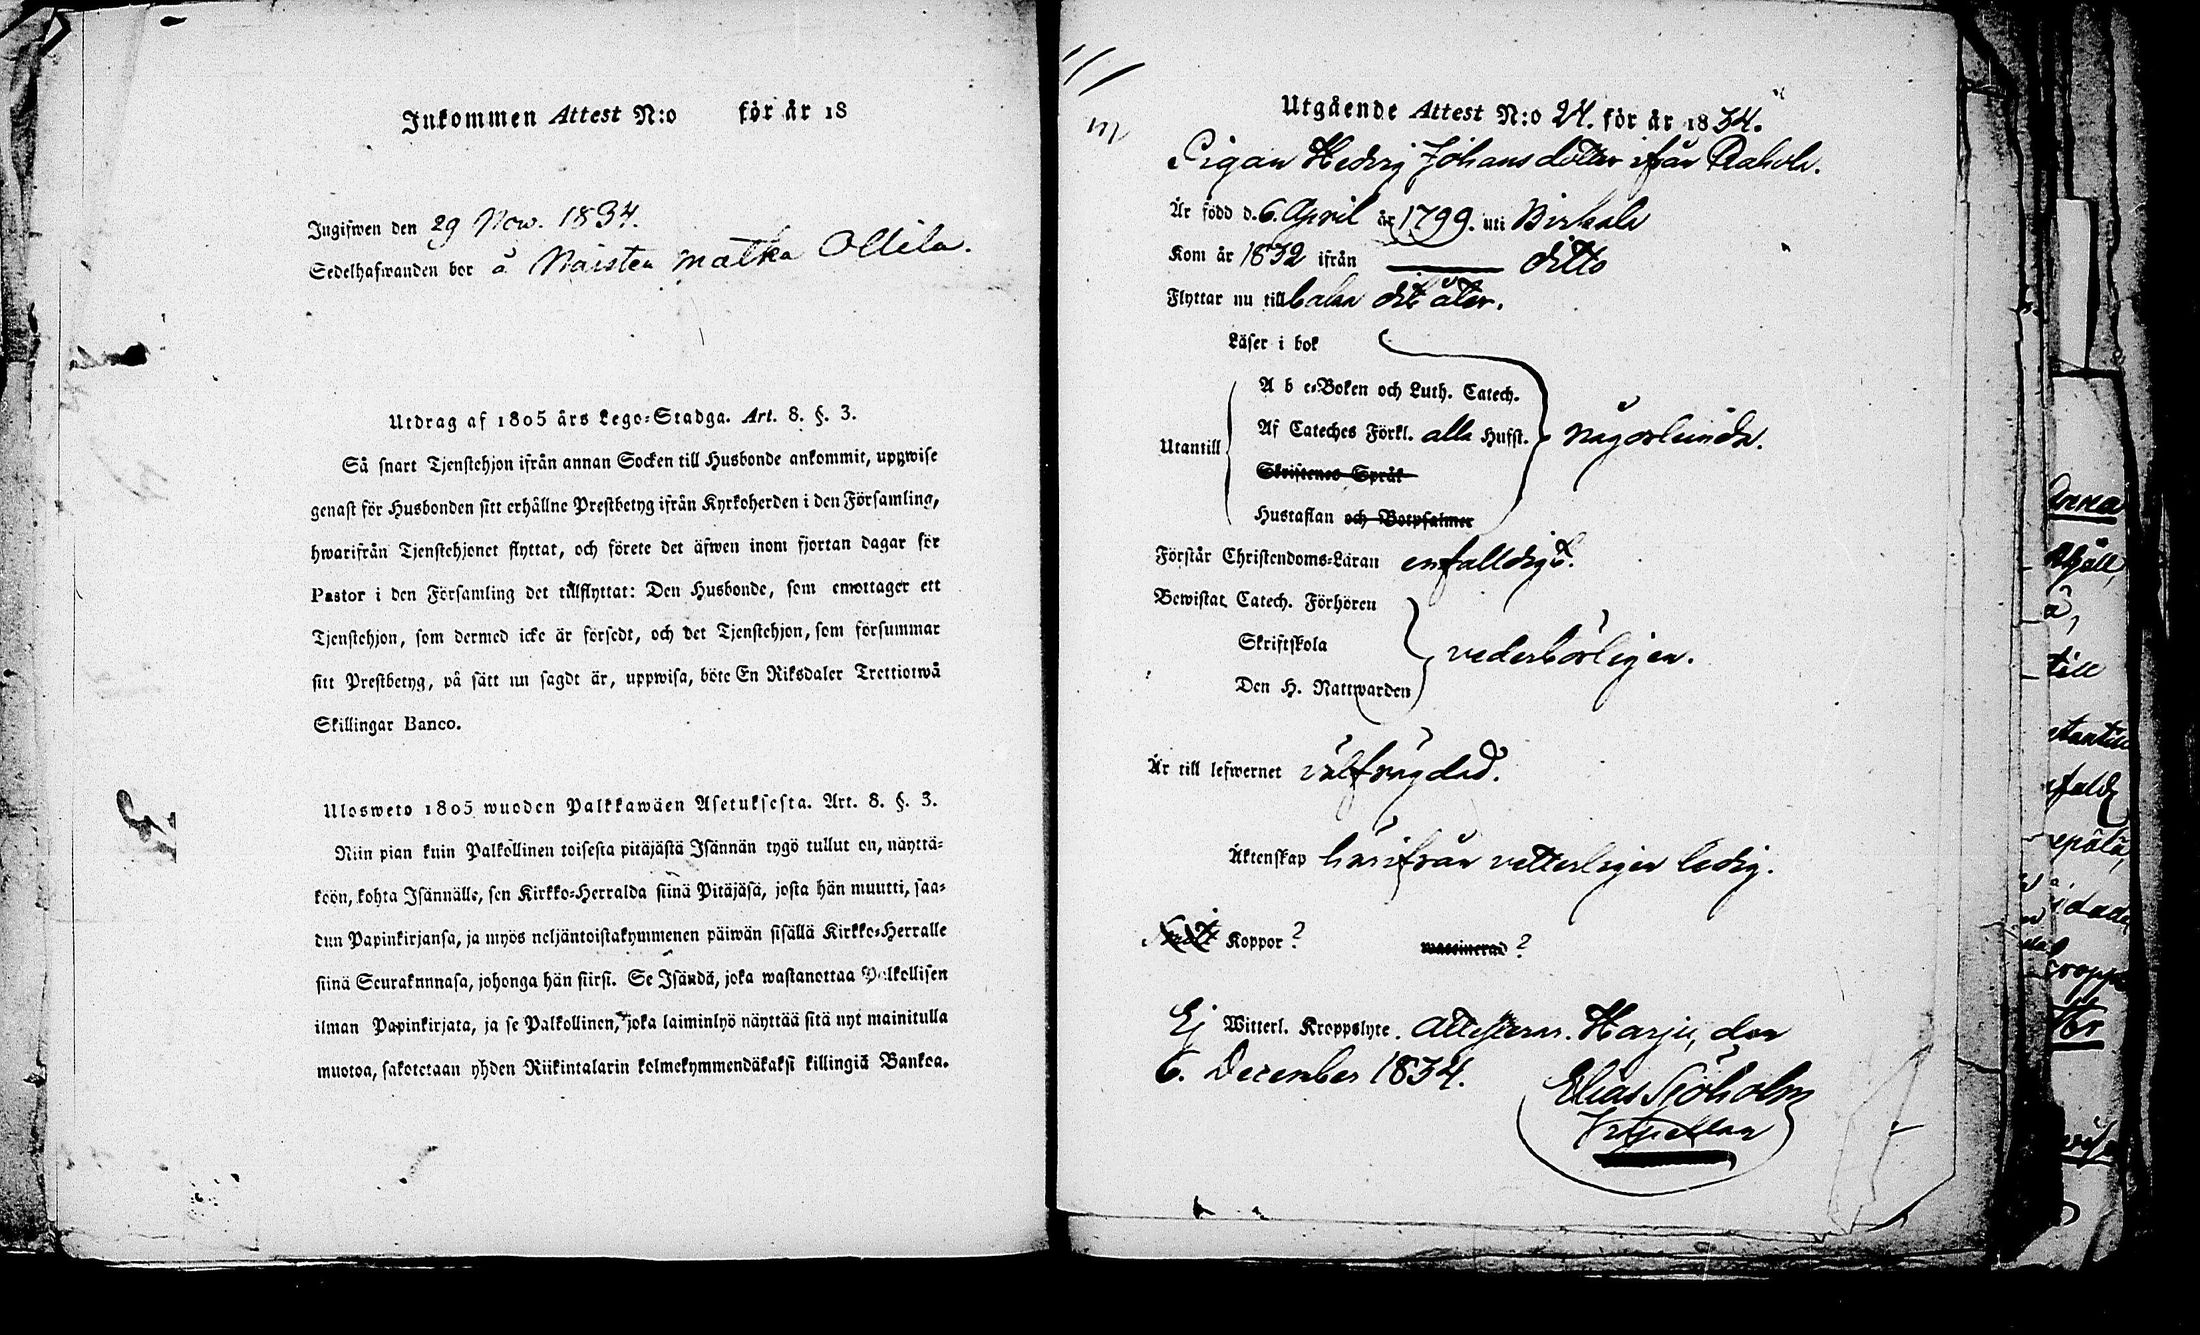 Inkommen Attest N:o för år 18
Ingifwen den 29 Nov. 1834.
Sedelhafwanden bor å Naisten matka Ollila.
Utdrag af 1805 års Lego-Stadga. Art. 8. §. 3.
Så snart Tjenstehjon ifrån annan Socken till Husbonde ankommit, uppwise
genast för Husbonden sitt erhållne Prestbetyg ifrån Kyrkoherden i den Församling,
hwarifrån Tjenstehjonet flyttat, och förete det äfwen inom fjortan dagar för
Pastor i den Församling det tillflyttat: Den Husbonde, som emottager ett
Tjenstehjon, som dermed icke är försedt, och det Tjenstehjon, som försummar
sitt Prestbetyg, på sätt nu sagdt är, uppwisa, böte En Riksdaler Trettiotwå
Skillingar Banco.
Ulosweto 1805 wuoden Palkkawäen Asetuksesta. Art. 8. §. 3.
Niin pian kuin Palkollinen toisesta pitäjästä Isännän tygö tullut on, näyttä-
köön, kohta Isännälle, sen Kirkko-Herralda siinä Pitäjäsä, josta hän muutti, saa-
dun Papinkirjansa, ja myös neljäntoistakymmenen päiwän sisällä Kirkko-Herralle
siinä Seurakunnasa, johonga hän siirsi. Se Isändä, joka wastanottaa Palkollisen
ilman Papinkirjata, ja se Palkollinen, joka laiminlyö näyttää sitä nyt mainitulla
muotoa, sakotetaan yhden Riikintalarin kolmekymmendäkaksi killingiä Bankoa.
Utgående Attest N:o 24. för år 1834.
Pigan Hedvig Johansdotter ifrån Rahola.
Är född d. 6. April år 1799. uti Birkala
Kom år 1832 ifrån ditto
Flyttar nu till dit åter.
Läser i bok
A b c-Boken och Luth. Catech.
Af Cateches Förkl. alla Hufst. någorlunda.
Utantill
Skriftenes Språk
Hustaflan och Botpsalmer
Förstår Christendoms-Läran enfalldigt.
Bewistat Catech. Förhören
Skriftskola vederbörligen.
Den H. Nattwarden
Är till lefwernet välfrägdad.
Äktenskap härifrån vetterligen ledig.
Koppor? waccinerad?
Ej Witterl. Kroppslyte. Attesteras. Harju, den
6. December 1834.
Elias Sjöholm